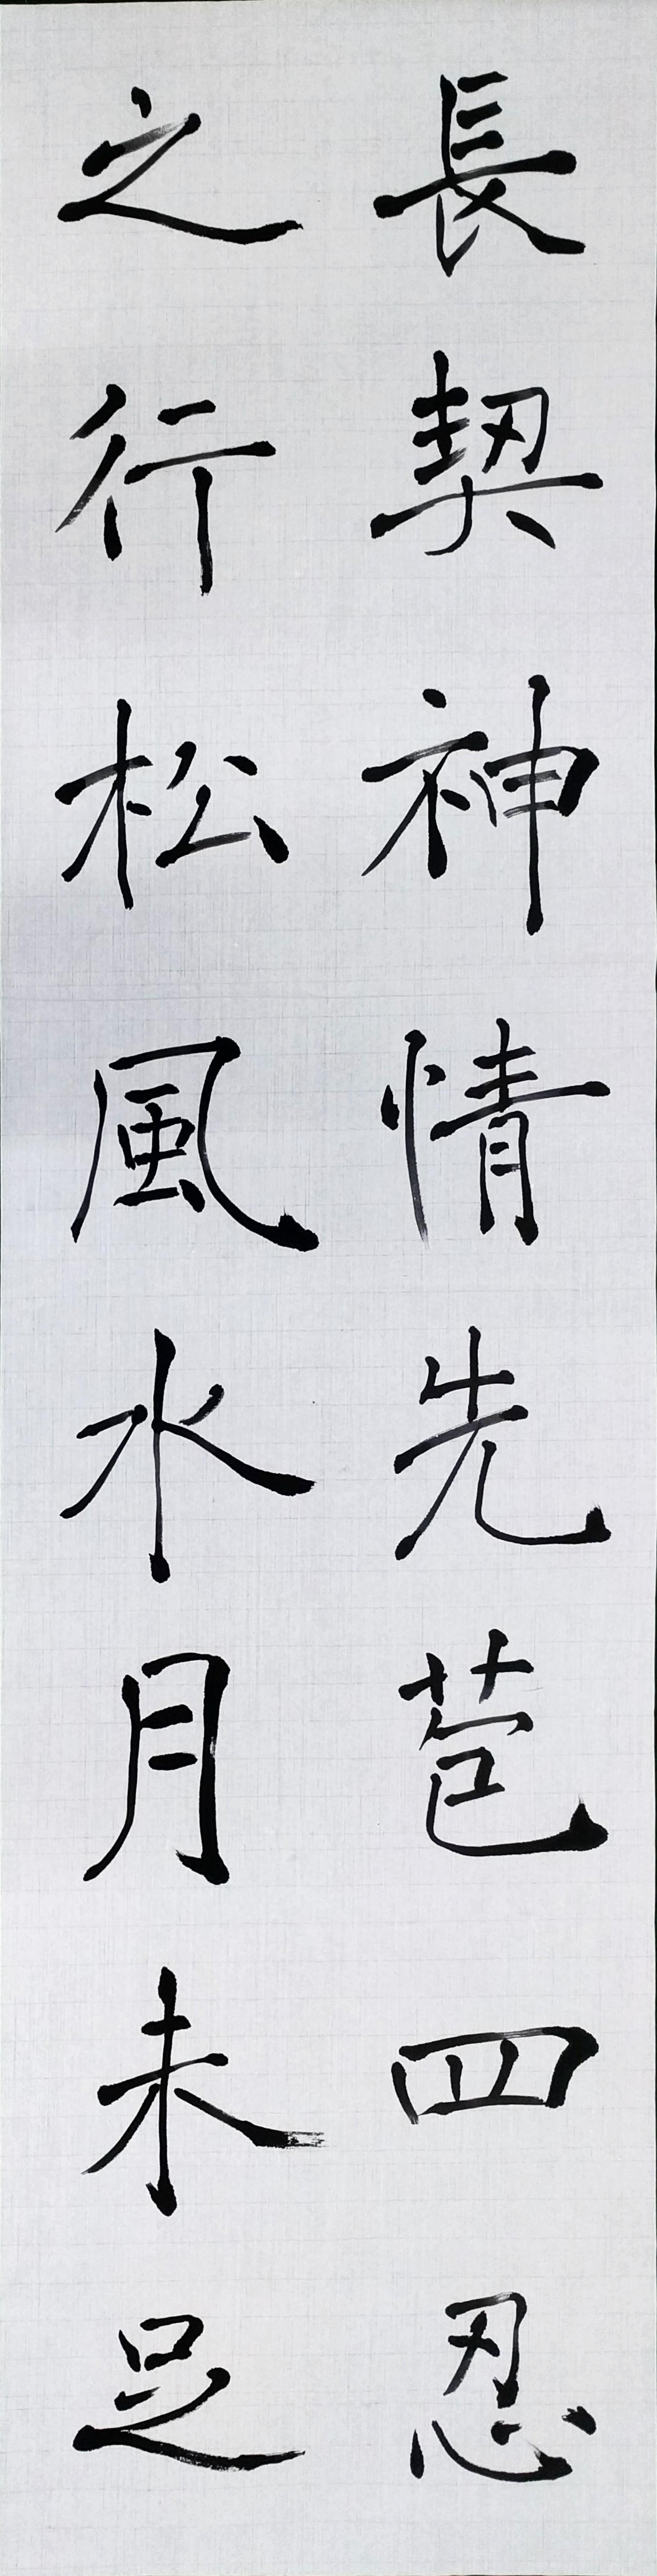 長契神情先苞四忍
之行松風水月未足